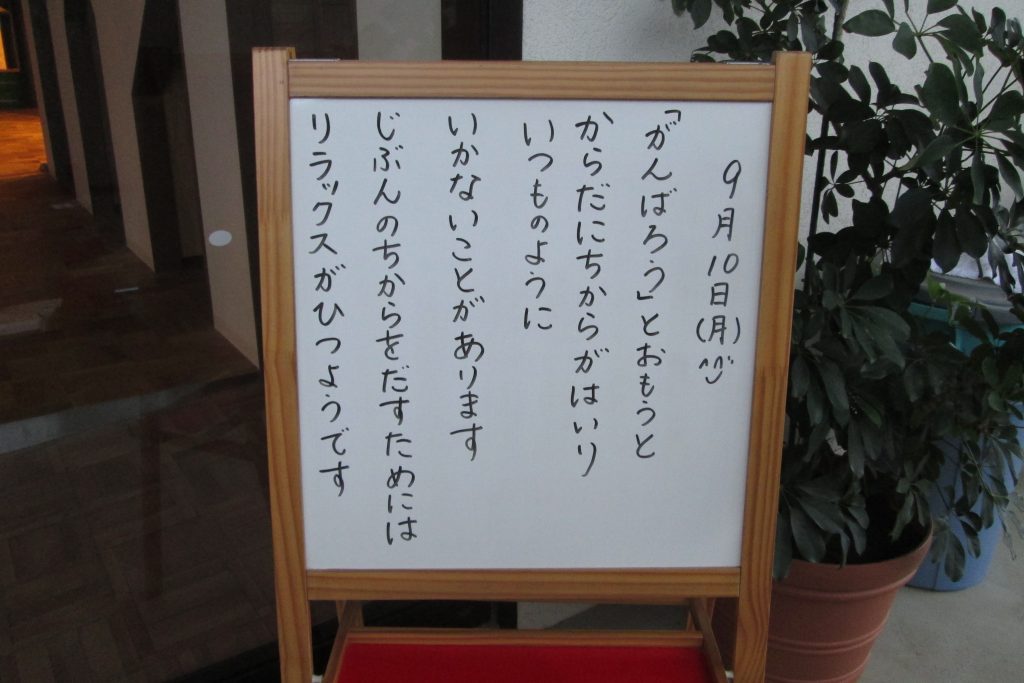 9月10日(月)^^
「がんばろう」とおもうと
からだにちからがはいり
いつものように
いかないことがあります
じぶんのちからをだすためには
リラックスがひつようです